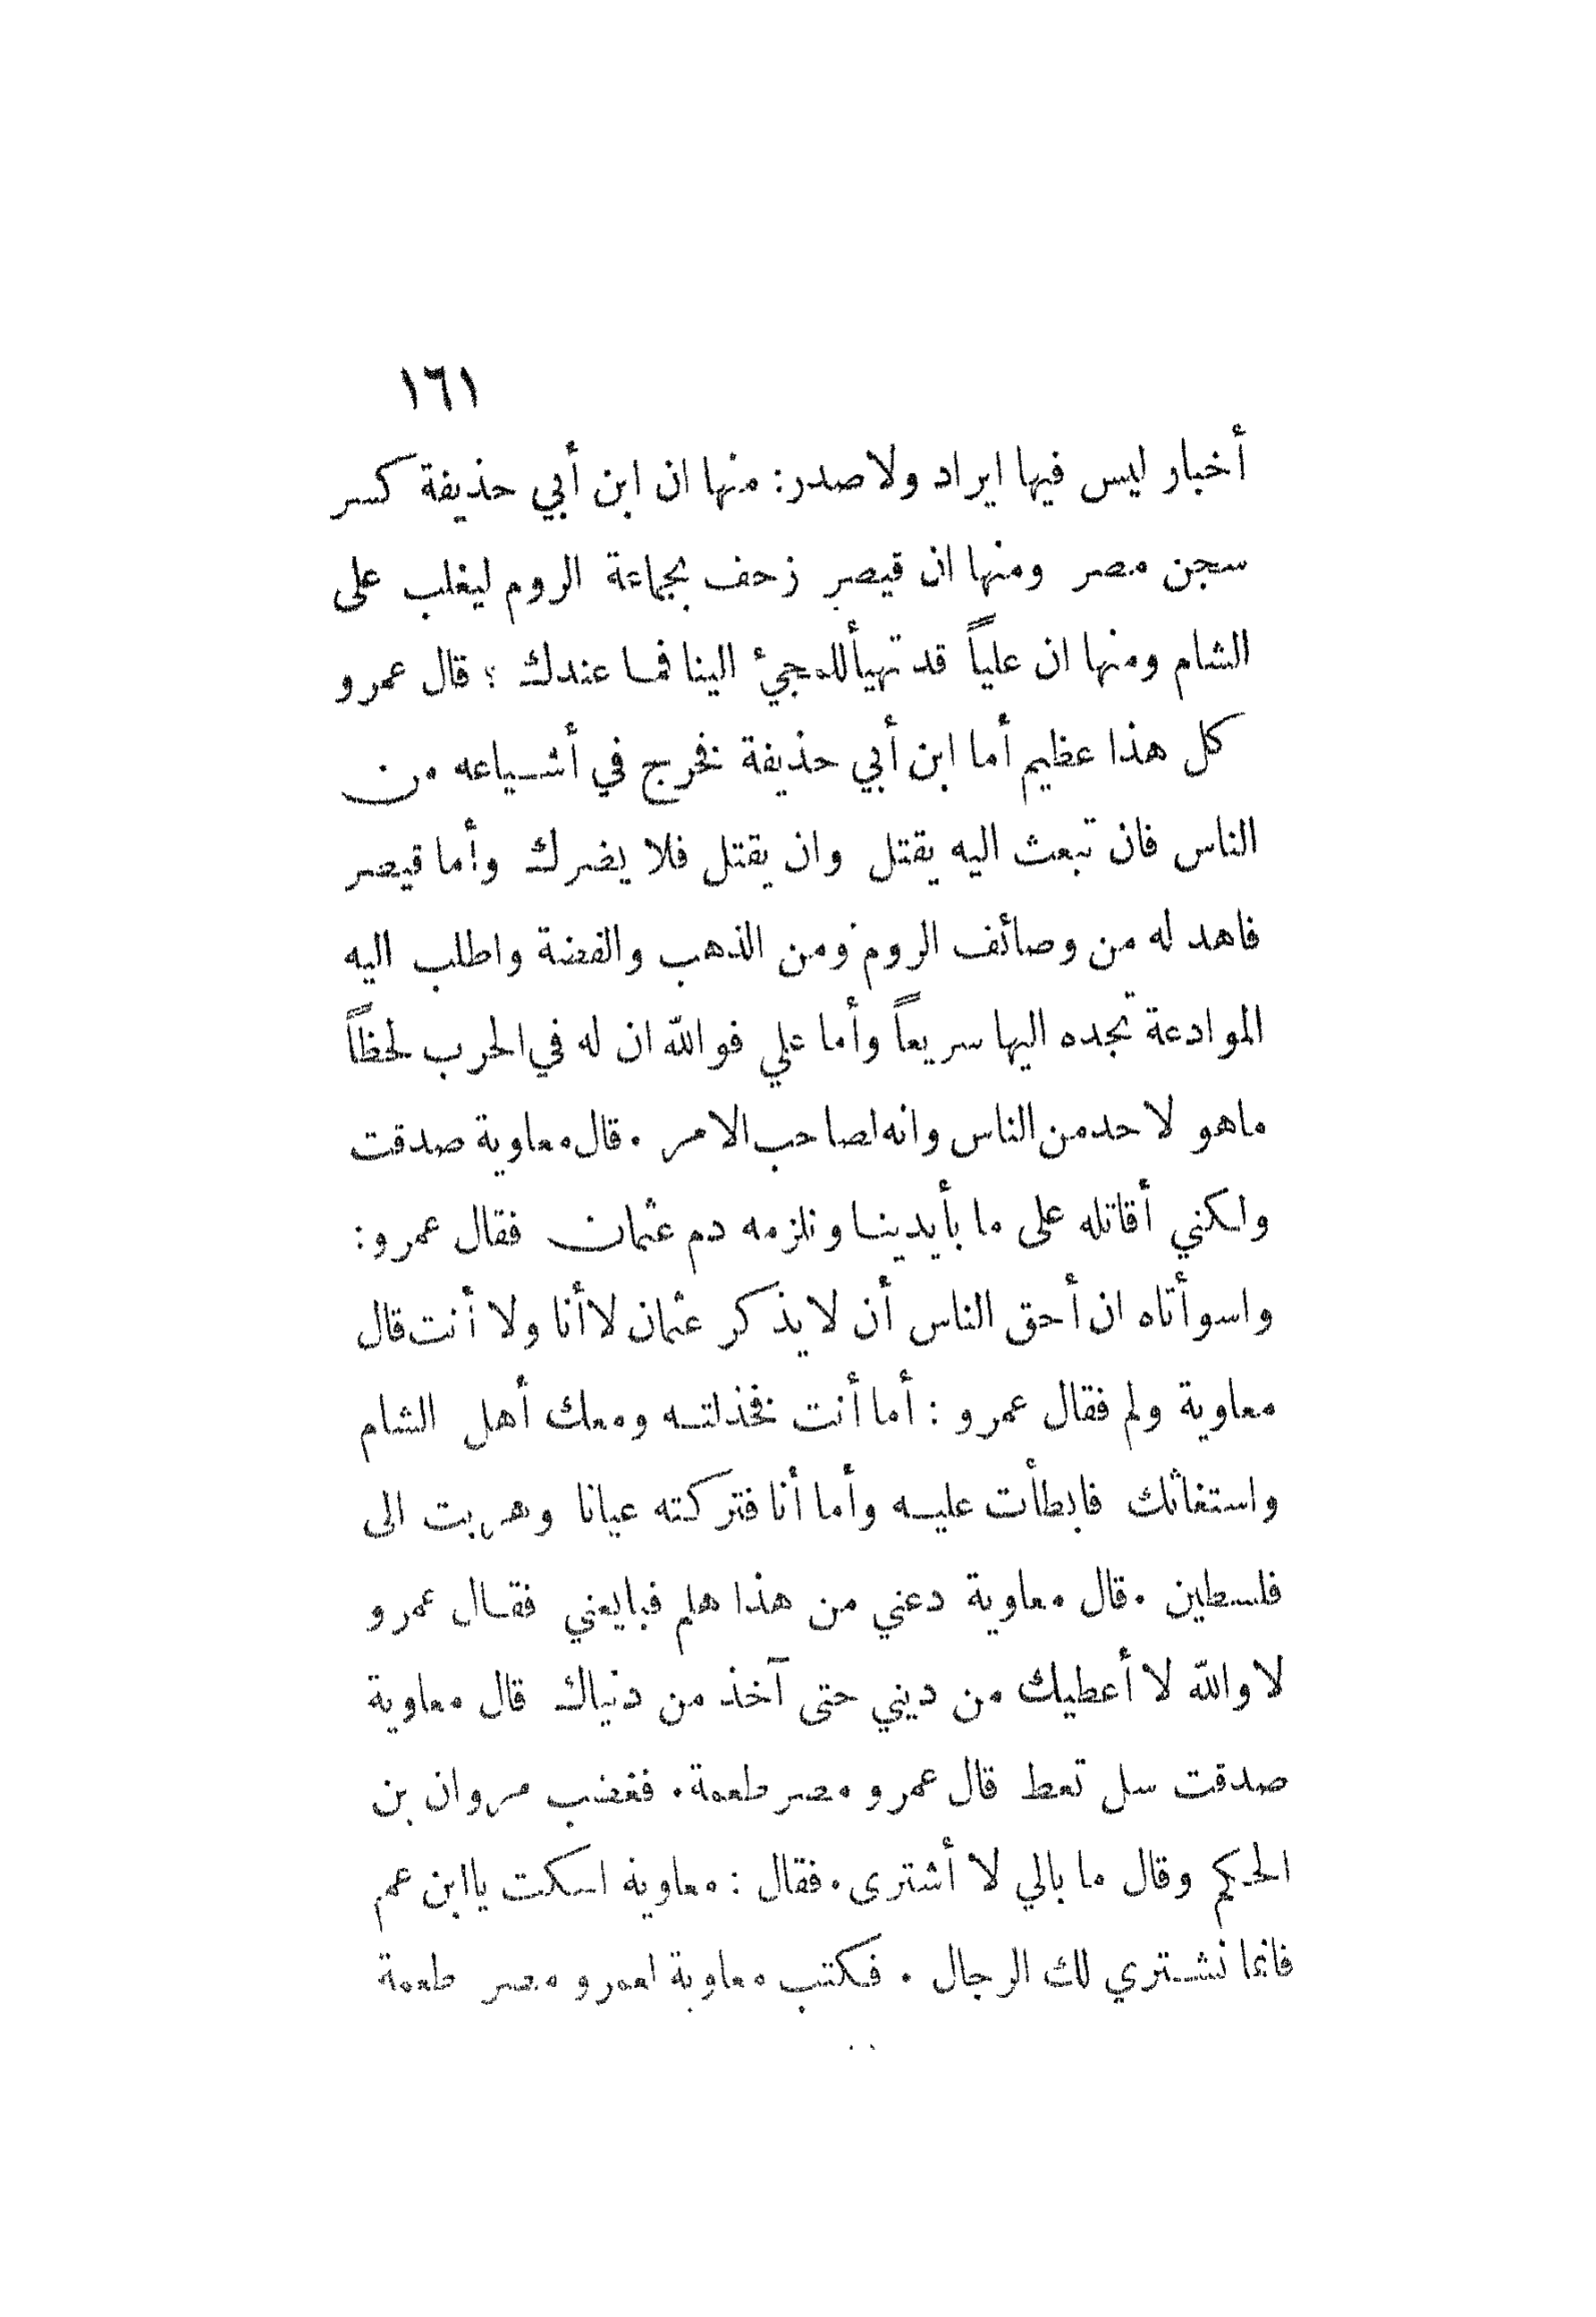 ١٦١
أخبار ليس فيها ايراد ولا صدر: منها ان ابن أبي حذيفة كسر
سجن مصر ومنها ان قيصر زحف بجماعة الروم ليغلب على
الشام ومنها ان علياً قد تهيأ للمجيء الينا فما عندك ؟ قال عمرو
كل هذا عظيم أما ابن أبي حذيفة فخرج في أشياعه من
الناس فان تبعث اليه يقتل وان يقتل فلا يضرك وأما قيصر
فاهد له من وصائف الروم ومن الذهب والفضة واطلب اليه
الموادعة تجده اليها سريعاً وأما علي فوالله ان له في الحرب لحظاً
ماهو لاحد من الناس وانه لصاحب الامر . قال معاوية صدقت
ولكني أقاتله على ما بأيدينا ونلزمه دم عثمان فقال عمرو :
واسوأتاه ان أحق الناس أن لا يذكر عثمان لا أنا ولا أنت قال
معاوية ولم فقال عمرو : أما أنت فخذلته ومعك أهل الشام
واستغاثك فابطأت عليه وأما أنا فتركته عيانا وهربت الى
فلسطين . قال معاوية دعني من هذا هلم فبايعني فقال عمرو
لا والله لا أعطيك من ديني حتى آخذ من دنياك قال معاوية
صدقت سل تعط قال عمرو مصر طعمة . فغضب مروان بن
الحكم وقال ما بالي لا أشترى . فقال : معاوية اسكت يا ابن عم
فانما نشتري لك الرجال . فكتب معاوية لعمرو مصر طعمة